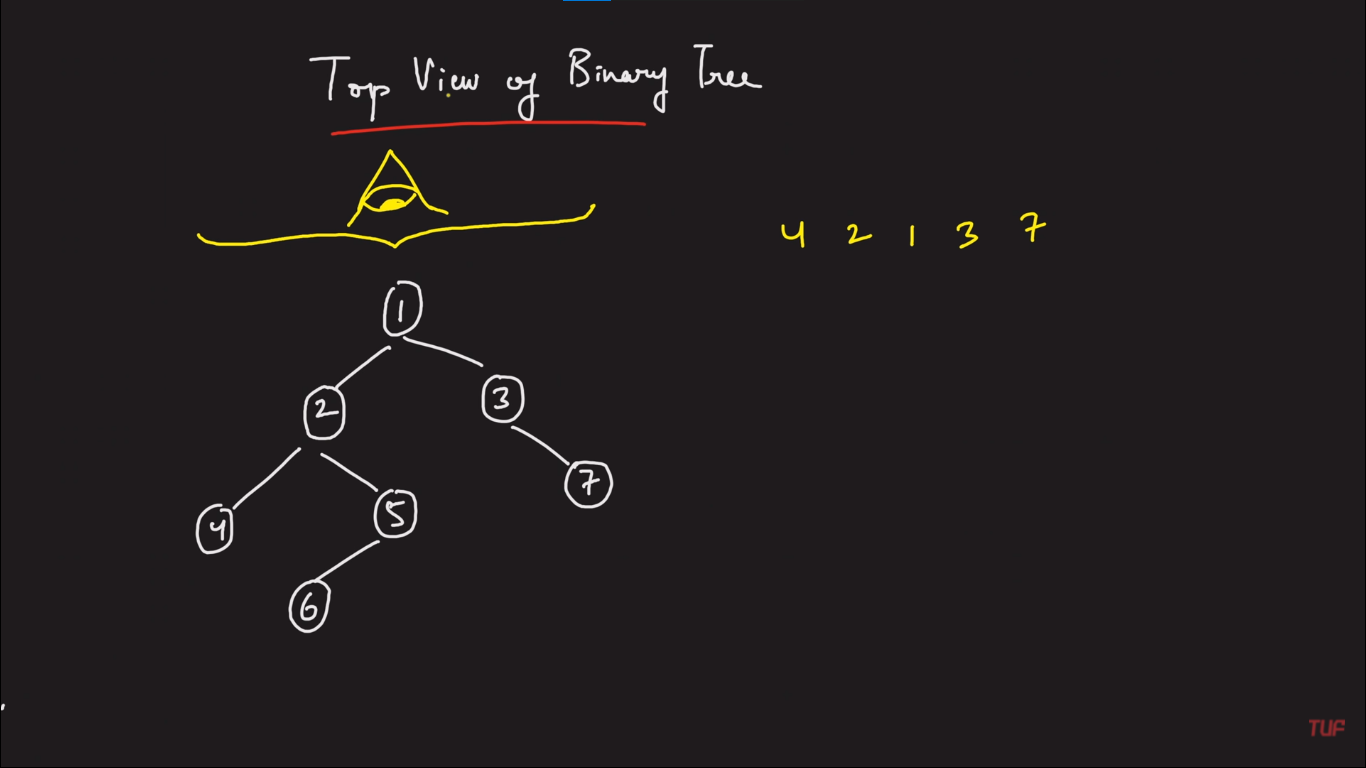 Top View of Binary Tree
4 2 1 3 7
1
2 3
4 5 7
6
TUF